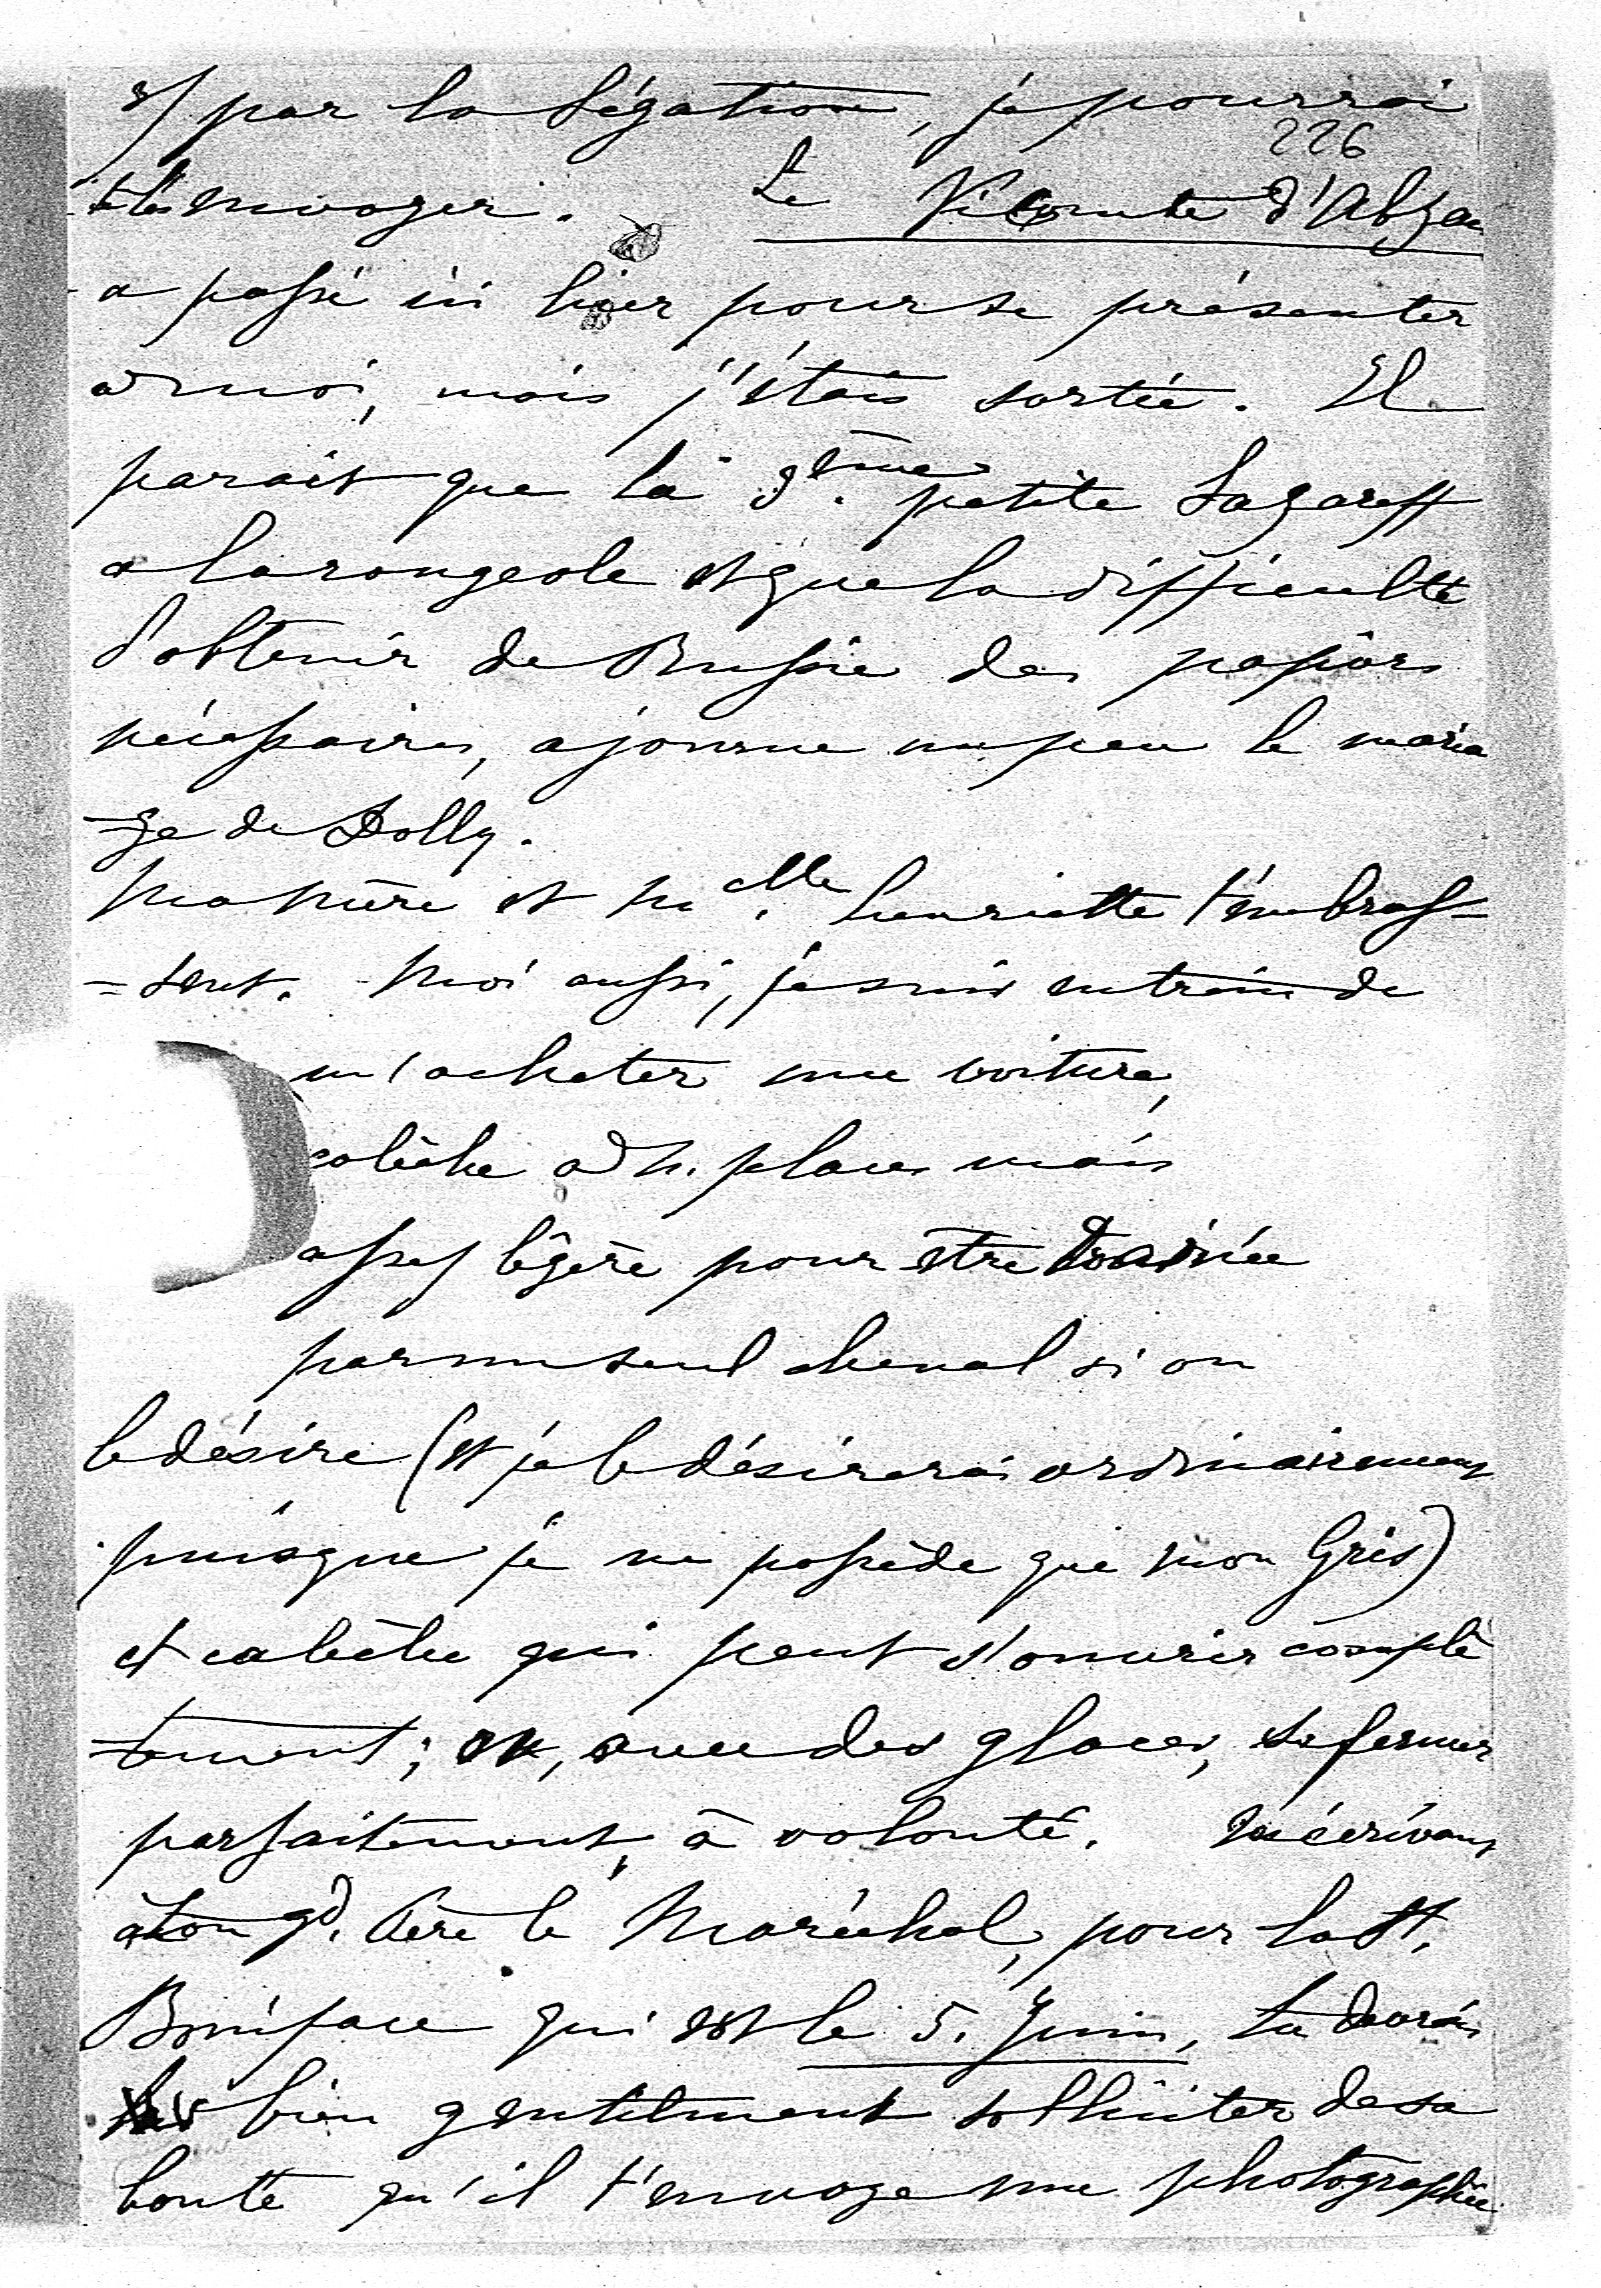 8/ par la Légation, je pourrai
226
te les envoyer. Le Vicomte d'Abzac
a passé ici hier pour se présenter
à moi, mais j'étais sortie. Il
parait que la 3ème. petite Lazareff
a la rougeole et que la difficulté
d'obtenir de Russie des papiers
nécessaires, ajourne un peu le maria
-ge de Dolly.
Ma Mère et Melle. Henriette t'embras=
=sent. Moi aussi, je suis entrain de
m'acheter une voiture,
calèche à 4. places mais
assez légère pour être trainée
par un seul cheval si on
le désire (et je le désirerai ordinairement
puisque je ne possède que mon Gris)
et calèche qui peut s'ouvrir complè
-tement; ou, avec des glaces, se fermer
parfaitement, à volonté. En écrivant
à ton gd. Père le Maréchal, pour la St.
Boniface qui est le 5. Juin, tu devrais
bien gentiment solliciter de sa
bonté qu'il t'envoye une photographie